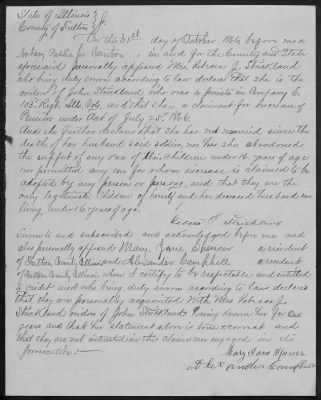 State of Illinois } S.S.
County of Fulton }
On this 31st day of October 1866 before me a
Notary Public for Canton in and for the County and State
aforesaid personally appeared Mrs Rebecca J. Strickland
who being duly sworn according to law declares that she is the
widow of John Strickland who was a private in Company E
103. Regt Ills Vols, and that she is a claimant for increase of
Pension under Act of July 25" 1866.
And she further declares that she has not married since the
death of her husband said soldier, nor has she abandoned
the support of any one of his children under 16 years of age
nor permitted any one for whom increase is claimed to be
adopted by any person or persons, and that they are the
only legitimate children of herself and her deceased husband now
living under 16 years of age.
Strickland
Sworn to and subscribed and acknowledged before me and
also personally appeared Mary Jane Spencer a resident
of Fulton County Illinois and Alexander Campbell a resident
of Fulton County Illinois whom I certify to be respectable and entitled
to credit and who being duly sworn according to law declare
that they are personally acquainted with Mrs Rebecca J.
Strickland widow of John Strickland having known her for
years and that her statement above is true & correct and
that they are not interested in this claim nor engaged in its
prosecution:—
Mary Jane Spencer
Alexander Campbell